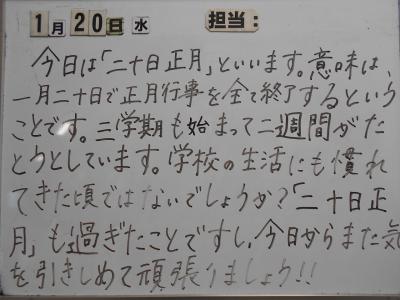 1月20日水 担当：
今日は「二十日正月」といいます。意味は、
一月二十日で正月行事を全て終了するという
ことです。三学期も始まって二週間がた
とうとしています。学校の生活にも慣れ
てきた頃ではないでしょうか？「二十日正
月」も過ぎたことですし、今日からまた気
を引きしめて頑張りましょう！！